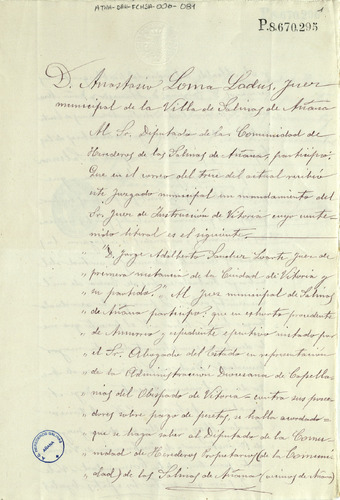 ATHA-DAH-FCHSA-000-081
1
P.8.670.295
D. Anastasio Loma Ladus, Juez
municipal de la Villa de Salinas de Añana
Al Sr. Diputado de la Comunidad de
Herederos de las Salinas de Añana, participo:
Que en el correo del trece del actual recibió
este Juzgado municipal un mandamiento del
Sr. Juez de Instrucción de Vitoria cuyo conte-
nido literal es el siguiente.
"D. Jorge Adalberto Sanchez Juez de
" primera instancia de la Ciudad de Vitoria y
" su partido." Al Juez municipal de Salinas
" de Añana participo: que en exhorto procedente
" de y expediente ejecutivo instado por
" el Sr. Abogado del Estado en representación
" de la Administración Diocesana de Capella-
" nias del Obispado de Vitoria contra sus posee-
" dores sobre pago de pesetas, se halla acordado
" que se haga saber al Diputado de la Comu-
" nidad de Herederos Propietarios (de la Comuni
" dad) de las Salinas de Añana (vecinos de Añana)
AÑANA